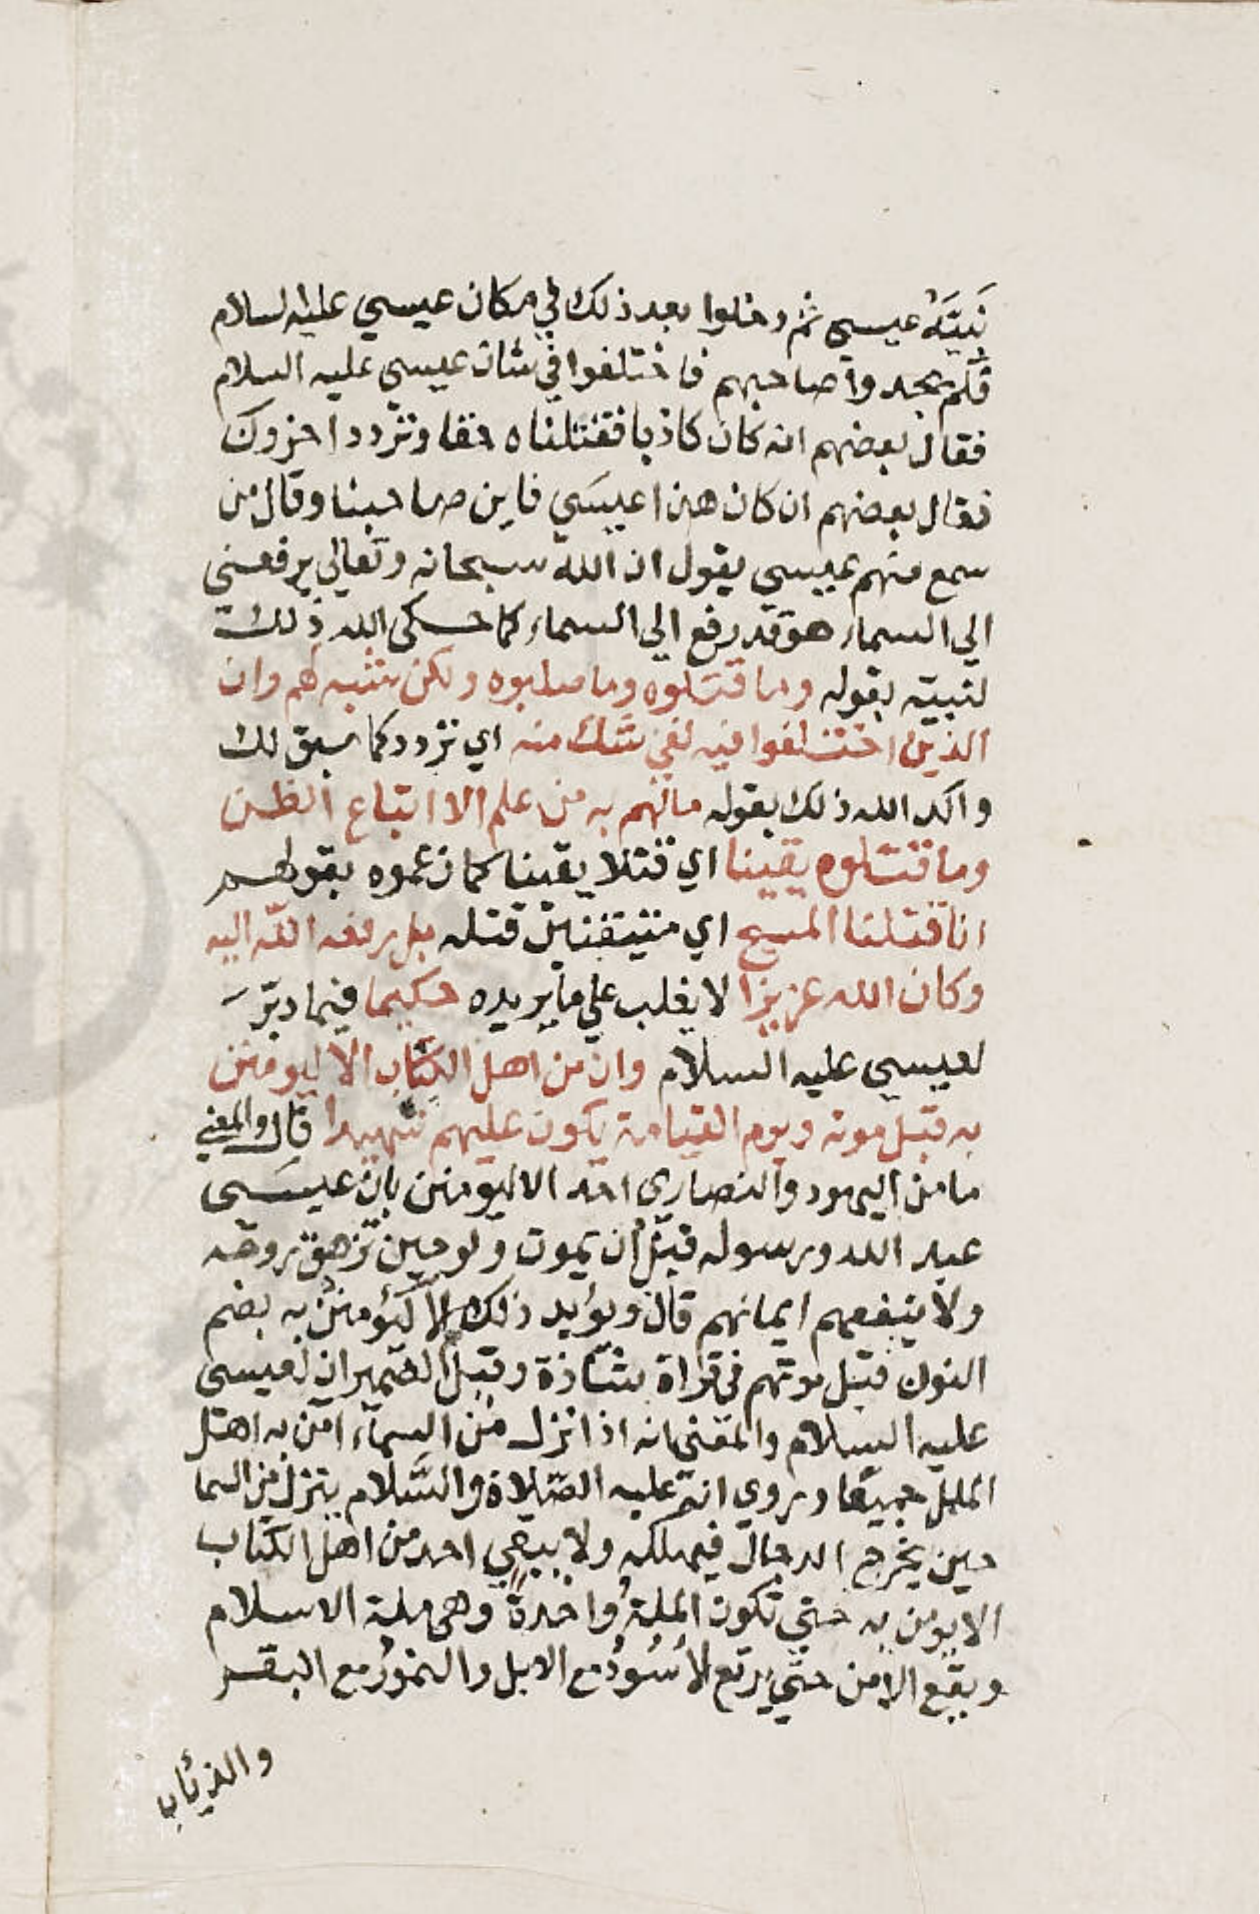 نَبيَّهُ عيسي ثم دخلوا بعد ذلك في مكان عيسي عليه السلام
فلم يجدوا صاحبهم فاختلفوا في شان عيسي عليه السلام
فقال بعضهم انه كان كاذبا فقتلناه حقا وتردد اخرون
فقال بعضهم ان كان هذا عيسَي فاين صاحبنا وقال من
سمع منهم عيسي يقول ان الله سبحانه وتعالي يرفعني
الي السماء هو قد رفع الي السماء كما حكى الله ذلك
لنبيه بقوله وما قتلوه وما صلبوه ولكن شبه لهم وان
الذين اختلفوا فيه لفي شك منه اي تردد كما سبق لك
واكد الله ذلك بقوله مالهم به من علم الا اتباع الظن
وما قتلوه يقينا اي قتلا يقينا كما زعموه بقولهم
انا قتلنا المسيح اي متيقنين قتله بل رفعه الله اليه
وكان الله عزيزا لا يغلب علي ما يريده حكيما فيما دبّرَ
لعيسي عليه السلام وان من اهل الكتاب الا ليومنن
به قبل موته ويوم القيامة يكون عليهم شهيدا قال والمعني
ما من اليهود والنصاري احد الا ليومنن بان عيسَى
عبد الله ورسوله قبل أن يموت ولو حين تزهق روحه
ولا ينفعهم ايمانهم قال ويؤيد ذلك الا ليؤمننُ به بضم
النون قبل موتهم في قراة شاذة وقيل الضميران لعيسى
عليه السلام والمعني انه اذا نزل من السماء امن به اهل
الملل جميعًا وروي انه عليه الصّلاة والسَّلام ينزل من السما
حين يخرج الدجال فيهلكه ولا يبقي احد من اهل الكتاب
الا يومن به حتي تكون الملةُ واحدةً وهى ملة الاسلام
ويقع الامن حتّي يرتع الأُسُودُ مع الابل والنمورُ مع البقر
والذئاب